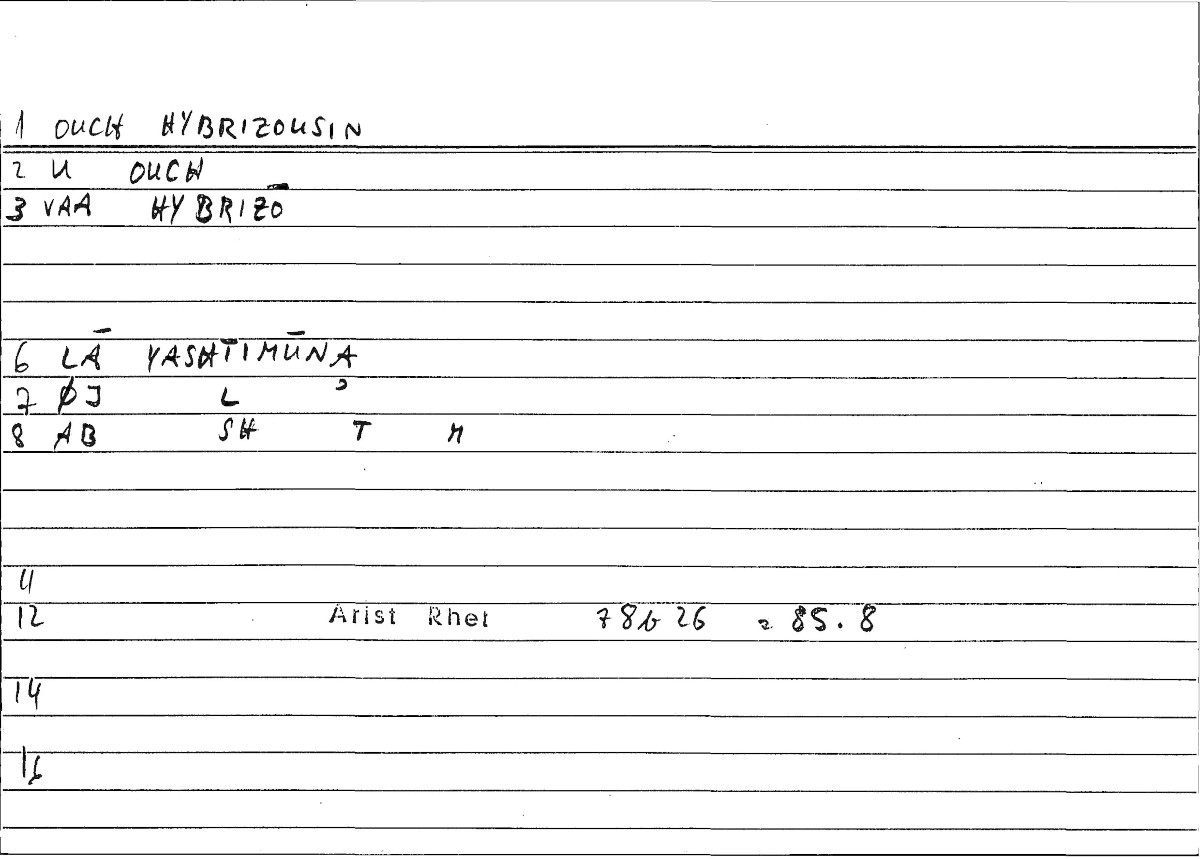 1 OUCH HYBRIZOUSIN
2 U OUCH
3 VAA HYBRIZŌ
6 LĀ YASHTIMŪNA
7 ØJ L ͗
8 AB SH T M
4
12 Arist Rhet 78b 26 = 85.8
14
16